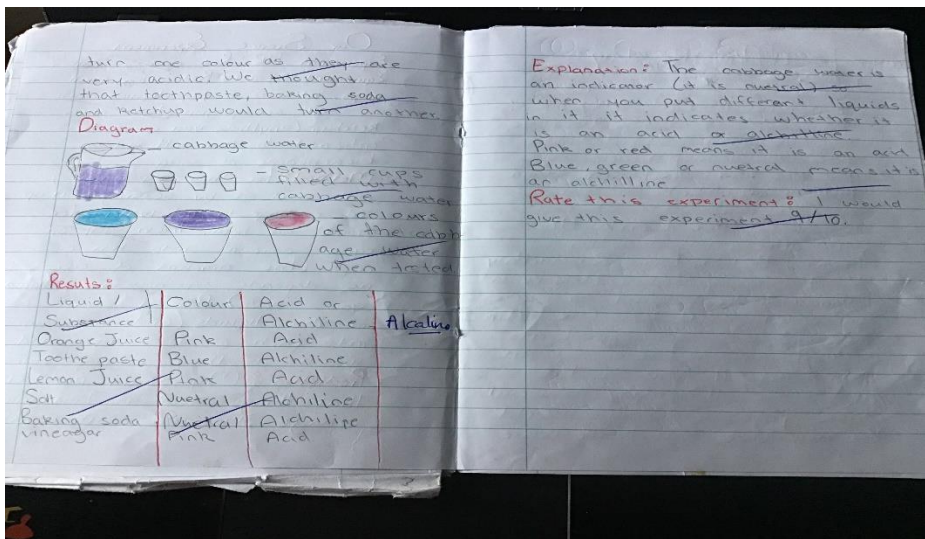 turn one colour as they are
very acidic. We thought
that toothpaste, baking soda
and Ketchup would turn another
Diagram
— cabbage water
— small cups
filled with
cabbage water
— colours
of the cabb
age water
when tested
Resuts:
Liquid / Substance | Colour | Acid or Alchiline | Alcaline
Orange Juice | Pink | Acid
Toothe paste | Blue | Alchiline
Lemon Juice | Pink | Acid
Salt | Nuetral | Alchiline
Baking soda | Nuetral | Alchiline
vineagar | Pink | Acid
Explanation: The cabbage water is
an indicator (it is nuetral) so
when you put different liquids
in it it indicates whether it
is an acid or alchilline
Pink or red means it is an acid
Blue, green or nuetral means it's
an alchilline
Rate this experiment: I would
give this experiment 9/10.